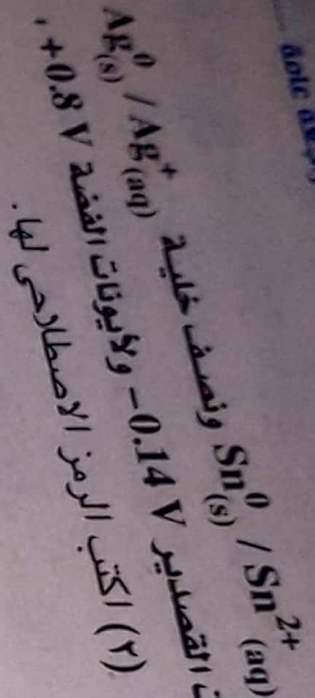 عامة
Sn⁰(s) / Sn²⁺(aq) ونصف خلية Ag⁰(s) / Ag⁺(aq)
القصدير -0.14 V ولأيونات الفضة +0.8 V ،
(٢) اكتب الرمز الاصطلاحى لها.